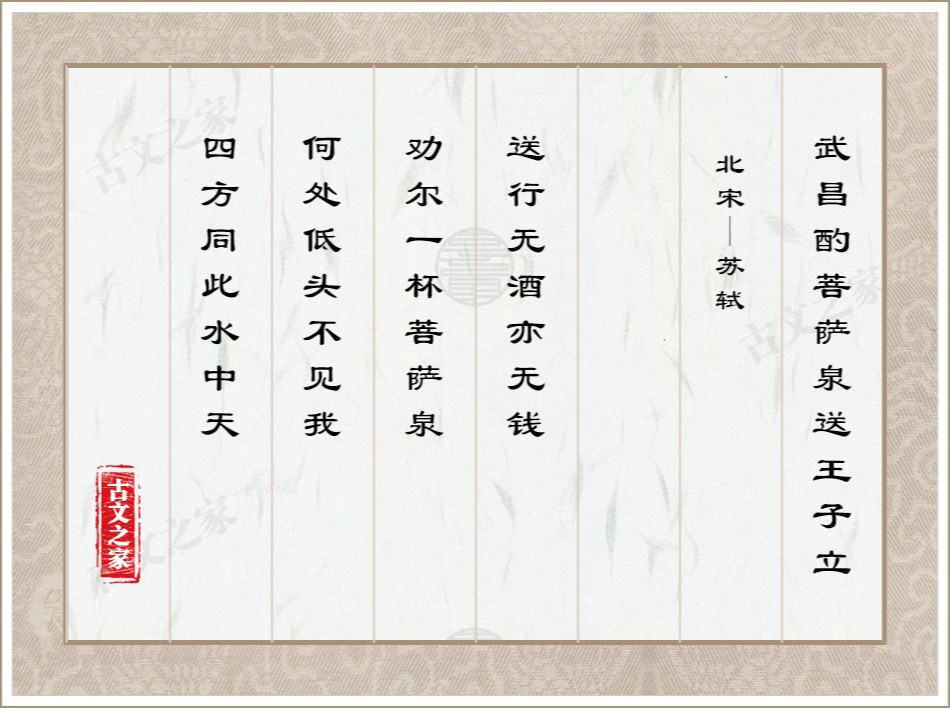 武昌酌菩萨泉送王子立
北宋—苏轼
送行无酒亦无钱
劝尔一杯菩萨泉
何处低头不见我
四方同此水中天
古文之家
古文之家
古文之家
古文之家